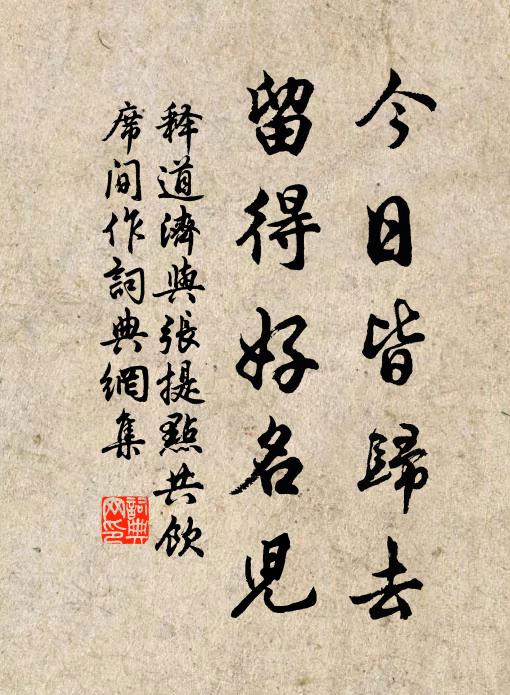 今日皆歸去
留得好名兒
释道濟與張提點共飲
席间作詞典網集
詞典
网印